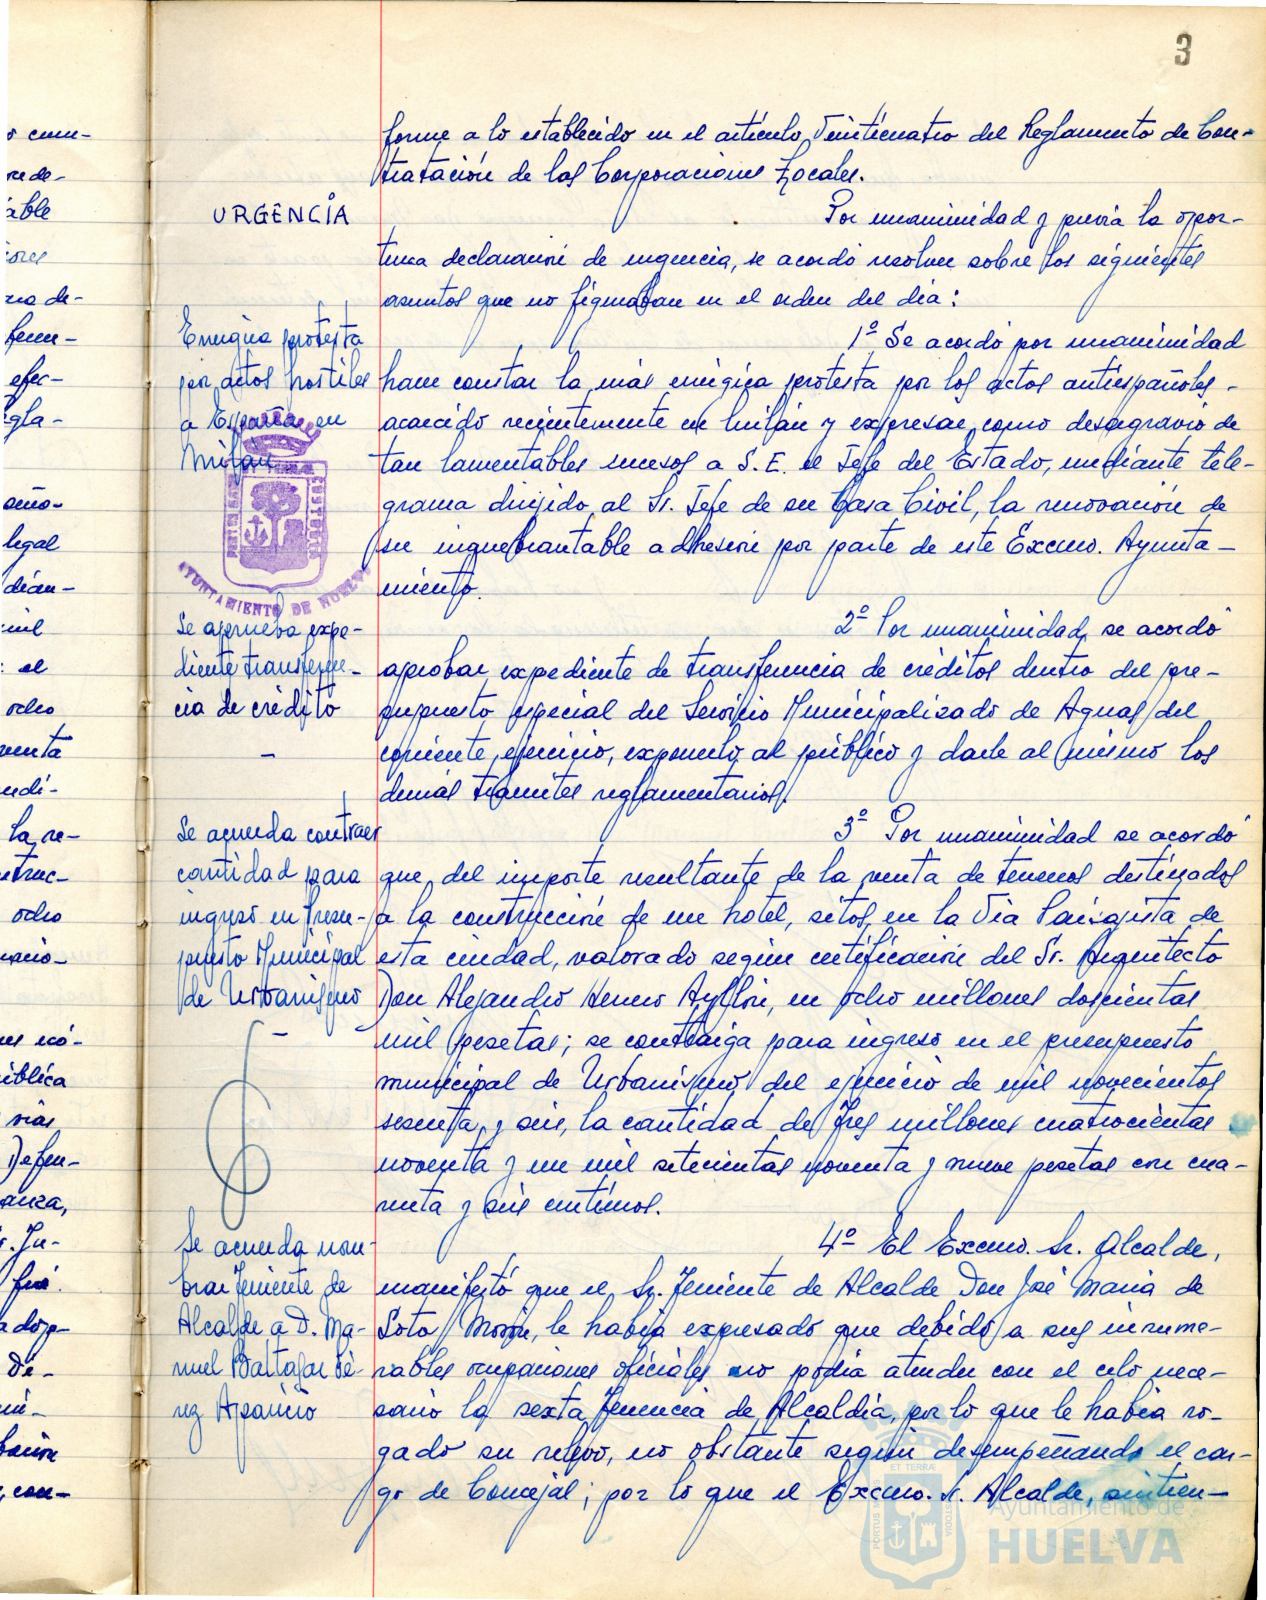 3
forme a lo establecido en el artículo Veinticuatro del Reglamento de Con-
tratación de las Corporaciones Locales.
URGENCIA
Por unanimidad y previa la opor-
tuna declaración de urgencia, se acordó resolver sobre los siguientes
asuntos que no figuraban en el orden del día:
Enérgica protesta
por actos hostiles
a España en
Milán
1º Se acordó por unanimidad
hacer constar la más enérgica protesta por los actos antiespañoles
acaecido recientemente en Milán y expresar, como desagravio de
tan lamentables sucesos a S.E. el Jefe del Estado, mediante tele-
grama dirijido al Sr. Jefe de su Casa Civil, la renovación de
su inquebrantable adhesión por parte de este Excmo. Ayunta-
miento.
AYUNTAMIENTO DE HUELVA
Se aprueba expe-
diente transferen-
cia de crédito
-
2º Por unanimidad, se acordó
aprobar expediente de transferencia de créditos dentro del pre-
supuesto especial del Servicio Municipalizado de Aguas del
corriente ejercicio, exponerlo al público y darle al mismo los
demás trámites reglamentarios.
Se acuerda contraer
cantidad para
ingreso en Presu-
puesto Municipal
de Urbanismo
-
3º Por unanimidad se acordó
que, del importe resultante de la venta de terrenos destinados
a la construcción de un hotel, sitos en la Vía Paisajista de
esta ciudad, valorado según certificación del Sr. Arquitecto
Don Alejandro Herrero Ayllón, en ocho millones doscientas
mil pesetas; se contraiga para ingreso en el presupuesto
municipal de Urbanismo del ejercicio de mil novecientos
sesenta y seis, la cantidad de tres millones cuatrocientas
noventa y un mil setecientas noventa y nueve pesetas con cua-
renta y seis céntimos.
Se acuerda nom-
brar Teniente de
Alcalde a D. Ma-
nuel Baltasar Pé-
rez Aparicio
4º El Excmo. Sr. Alcalde,
manifestó que el Sr. Teniente de Alcalde Don José María de
Soto Morón, le había expresado que debido a sus innume-
rables ocupaciones oficiales no podía atender con el celo nece-
sario la sexta Tenencia de Alcaldía, por lo que le había ro-
gado su relevo, no obstante seguir desempeñando el car-
go de Concejal; por lo que el Excmo. Sr. Alcalde, sintien-
Ayuntamiento de
HUELVA